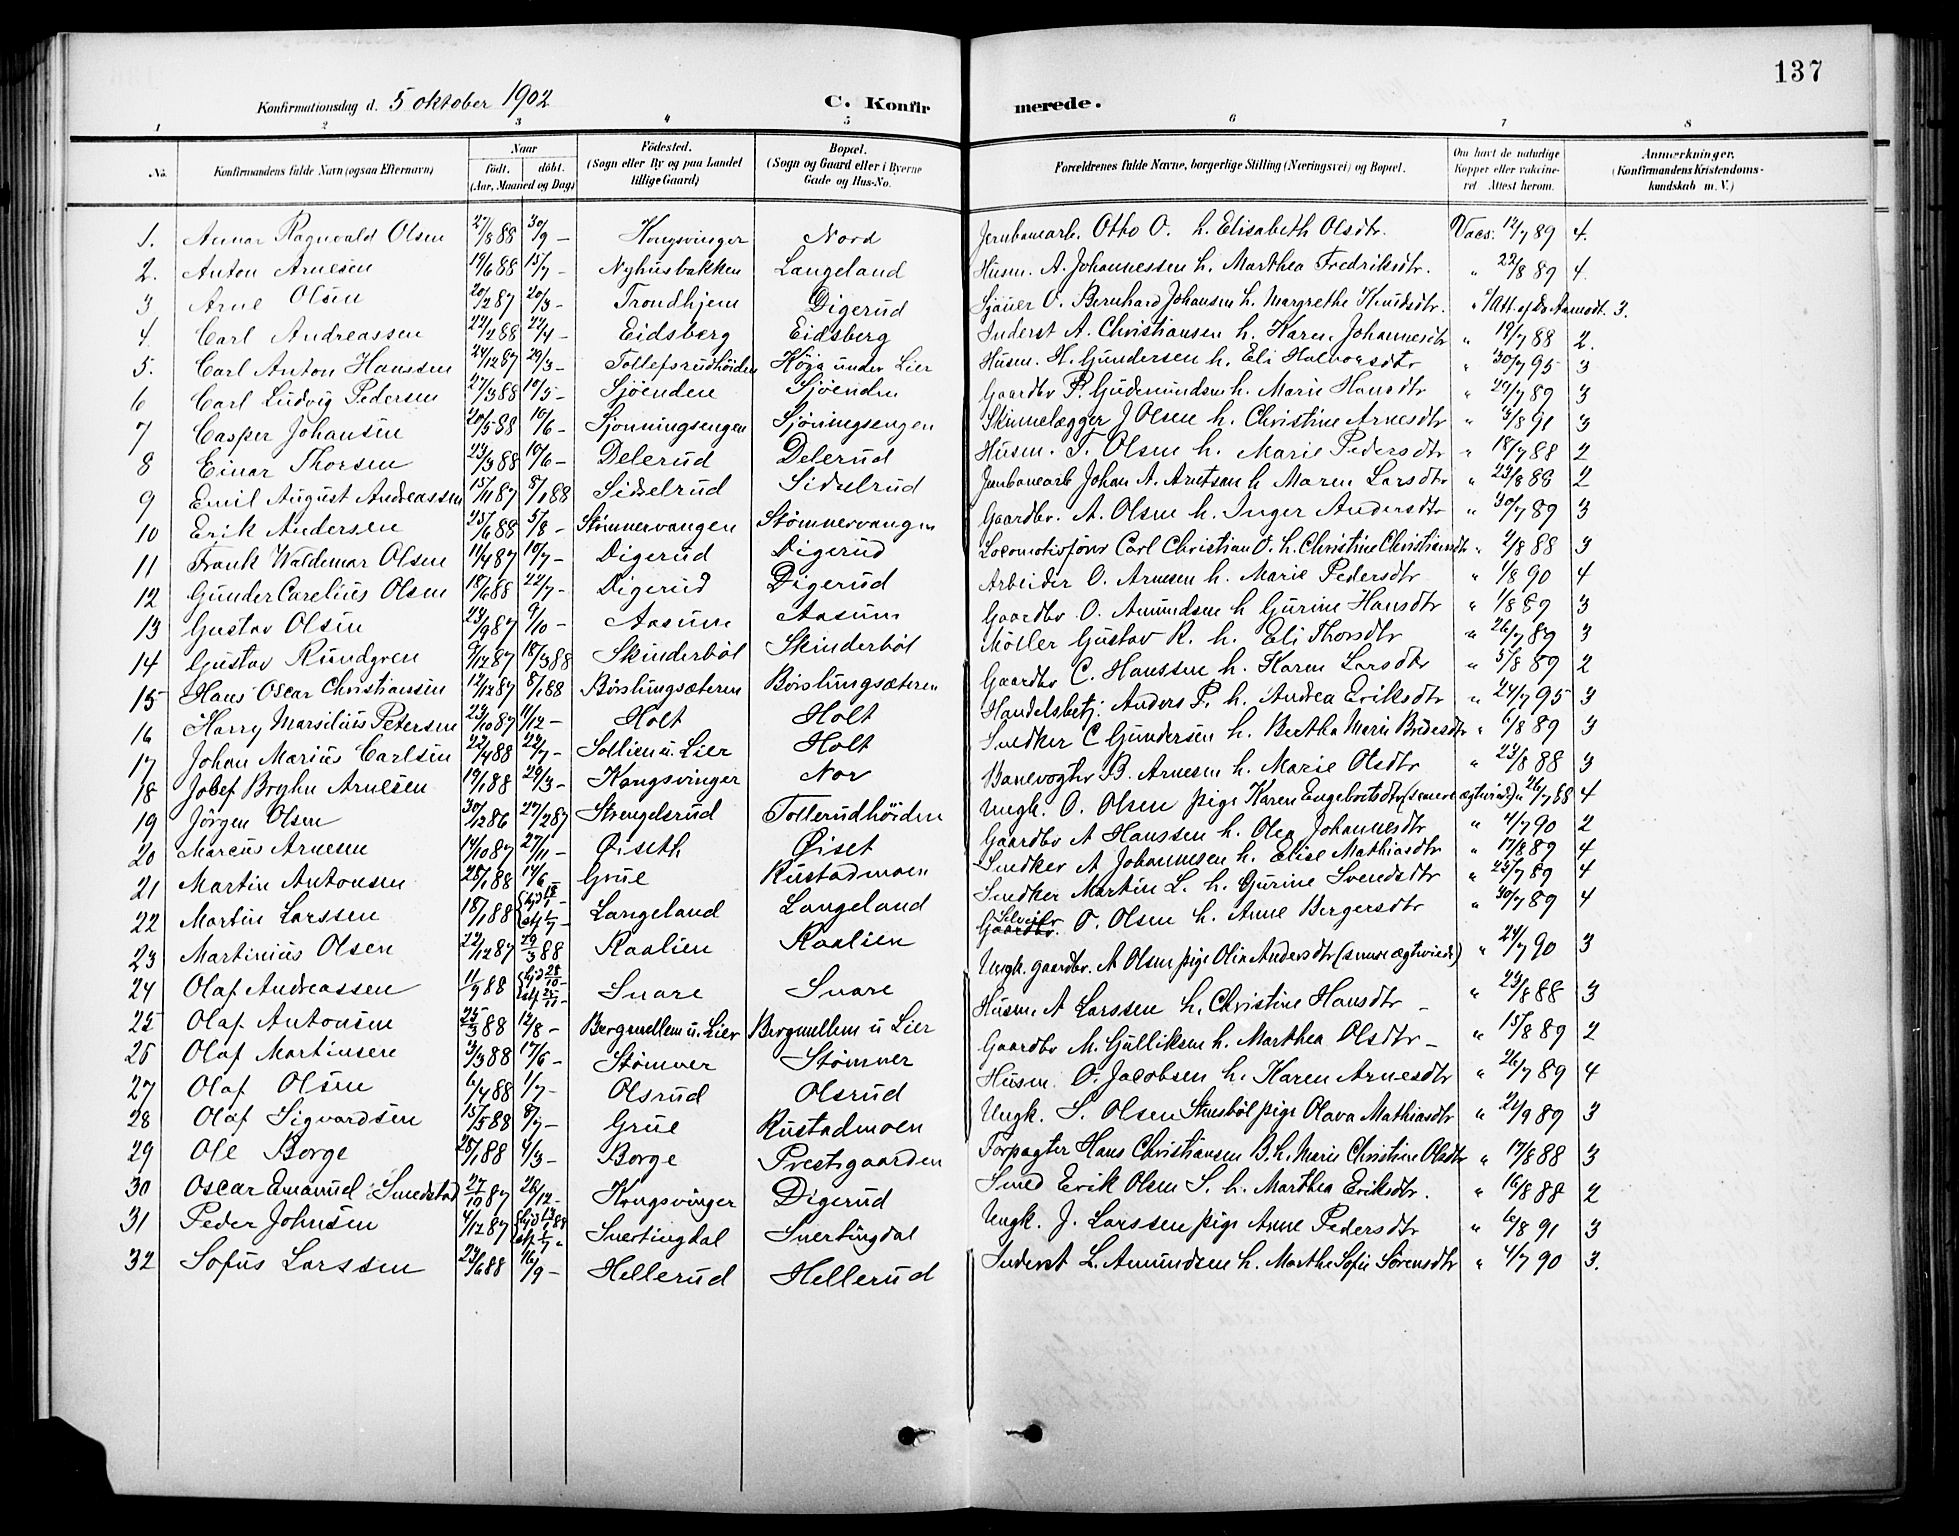 137
Konfirmationsdag d. 5 oktober 1902 C. Konfirmerede.
1 2 3 4 5 6 7 8
No. Konfirmandens fulde Navn (ogsaa Efternavn) Naar født. døbt. (Aar, Maaned og Dag) Fødested. (Sogn eller By og paa Landet tillige Gaard) Bopæl. (Sogn og Gaard eller i Byerne Gade og Hus-No. Forældrenes fulde Navne, borgerlige Stilling (Næringsvei) og Bopæl. Om havt de naturlige Kopper eller vaccineret Attest herom. Anmerkninger. (Konfirmandens Kristendomskundskab m. V.)
1. Annar Ragnvald Olsen 27/8 88 30/9 – Kongsvinger Nord Jernbanearb. Otto O. h. Elisabeth Olsdtr. Vacs. 12/7 89 4.
2. Anton Arnesen 19/6 88 15/7 – Nyhusbakken Langeland Husm. A. Johannessen h. Marthea Fredriksdtr. " 22/8 89 4.
3 Arne Olsen 20/2 87 20/3 – Trondhjem Digerud Sjauer O. Bernhard Johansen h. Margrethe Knudsdtr. " Att. af Dr 3.
4. Carl Andreassen 22/2 88 22/4 – Eidsberg Eidsberg Inderst A. Christiansen h. Karen Johannesdtr " 19/7 88 2.
5. Carl Anton Hanssen 24/12 87 29/3 – Tollefsrudhöiden Höga under Lier Husm. H. Gundersen h. Eli Halvorsdtr " 30/7 95 3
6 Carl Ludvig Pedersen 27/3 88 10/5 – Sjöenden Sjöenden Gaardbr P. Gudmundsen h. Marie Hansdtr " 29/7 89 3
7 Casper Johansen 20/5 88 10/6 – Sjöningsengen Sjöningsengen Skinnelægger J Olsen h. Christine Arnesdtr " 3/8 91 3
8 Einar Thorsen 23/3 88 10/6 – Delerud Delerud Husm. T. Olsen h. Marie Pedersdtr " 18/7 88 2
9 Emil August Andreassen 15/11 87 8/1 88 Sidselrud Sidselrud Jernbanearb Johan A. Arntsen h Maren Larsdtr " 23/8 88 2
10 Erik Andersen 25/6 88 5/8 – Stømnervangen Stømnervangen Gaardbr. A. Olsen h. Inger Andersdtr " 30/7 89 3
11 Frank Waldemar Olsen 11/4 87 10/7 – Digerud Digerud Locomotivförer Carl Christian O. h. Christine Christiansdtr " 2/8 88 3
12 Gunder Carelius Olsen 18/6 88 22/7 – Digerud Digerud Arbeider O. Arnesen h. Marie Pedersdtr " 1/8 90 4
13 Gustav Olsen 23/9 87 9/10 – Aasum Aasum Gaardbr O. Amundsen h Gurine Hansdtr " 1/8 89 3
14 Gustav Rundgren 9/12 87 18/3 88 Skinderböl Skinderböl Möller Gustav R. h. Eli Thorsdtr " 26/7 89 3
15 Hans Oscar Christiansen 12/12 87 8/1 88 Börslungsæteren Börslungsæteren Gaardbr C. Hanssen h. Karen Larsdtr " 5/8 89 2
16 Harry Marsilius Petersen 23/10 87 11/12 – Holt Holt Handelsbetj. Anders P. h. Andrea Eriksdtr " 24/7 95 3
17 Johan Marius Carlsen 22/4 88 22/7 – Sollien u. Lier Holt Snedker C Gundersen h. Bertha Marie " 6/8 89 3
18 Josef Bryhn Arnesen 19/1 88 29/3 – Kongsvinger Nor Banevogter B. Arnesen h. Marie Olsdtr " 23/8 88 3
19 Jörgen Olsen 30/12 86 27/2 87 Strengelsrud Tollerudhöiden Ungk. O. Olsen pige Karen Engebretsdtr (senere ægteviede) " 26/7 88 4
20 Marcus Arnesen 14/10 87 27/11 – Øiseth Øiset Gaardbr A Hanssen h. Olea Johannesdtr " 4/7 90 2
21 Martin Antonsen 28/1 88 14/6 – Grue Rustadmoen Snedker A. Johannesen h. Elise Mathiasdtr " 17/8 89 4
22 Martin Larssen 18/1 88 Langeland Langeland Snedker Martin L. h. Gurine Svendsdtr " 25/7 89 4
23 Martinius Olsen 22/12 87 29/3 88 Raalien Raalien Gaardbr. Selveier O. Olsen h. Anne Bergersdtr " 30/7 89 4
24 Olaf Andreassen 11/9 88 Snare Snare Ungk. gaardbr. A Olsen pige Olia Andersdtr (senere ægteviede) " 24/7 90 3
25 Olaf Antonsen 25/3 88 12/8 – Bergmellem u. Lier Bergmellem u Lier Husm. A Larssen h. Christine Hansdtr – " 23/8 88 3
26 Olaf Martinsen 3/3 88 17/6 – Stømner Stømner Gaardbr M. Gulliksen h. Marthea Olsdtr – " 15/8 89 2
27 Olaf Olsen 6/4 88 1/7 – Olsrud Olsrud Husm. O. Jacobsen h. Karen Arnesdtr " 26/7 89 4
28 Olaf Sigvardsen 15/5 88 8/7 – Grue Rustadmoen Ungk. S. Olsen pige Olava Mathiasdtr " 21/9 89 3
29 Ole Borge 28/1 88 4/3 – Borge Prestgaarden Forpagter Hans Christiansen B. h. Marie Christine Olsdtr " 17/8 88 3
30 Oscar Emanuel Smedstad 27/10 87 26/12 – Kongsvinger Digerud Smed Erik Olsen S. h. Marthea Eriksdtr. " 16/8 88 2
31 Peder Johnsen 4/12 87 Snertingdal Snertingdal Ungk. J. Larssen pige Anne Pedersdtr " 6/8 91 3
32 Sofus Larssen 23/6 88 16/9 – Hellerud Hellerud Inderst L. Amundsen h. Marthe Sofie Sørensdtr " 4/7 90 3.